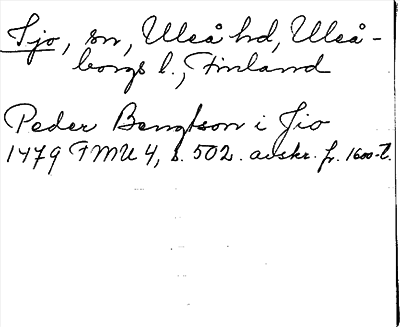 Ijo, sn, Uleå hd, Uleå-
borgs l., Finland
Peder Bengtson i Jio
1479 FMU 4, s. 502. avskr. fr. 1600-t.